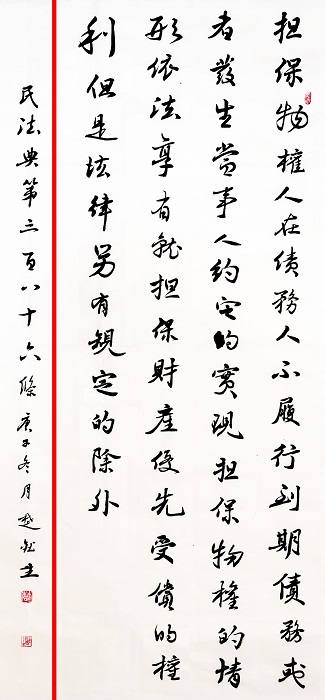 担保物權人在債務人不履行到期債務或
者發生當事人約定的實現担保物權的情
形依法享有就担保財產優先受償的權
利但是法律另有規定的除外
民法典第三百八十六條庚子冬月